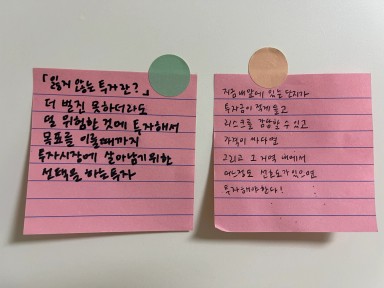 「잃지 않는 투자란?」
더 벌진 못하더라도
덜 위험한 것에 투자해서
목표를 이룰때까지
투자시장에 살아남기위한
선택을 하는투자
지금 내앞에 있는 단지가
투자금이 적게 들고
리스크를 감당할 수 있고
가격이 싸다면
그리고 그 지역 내에서
어느정도 선호도가 있으면
투자해야한다!